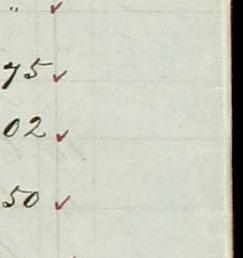 " ✓
75 ✓
02 ✓
50 ✓